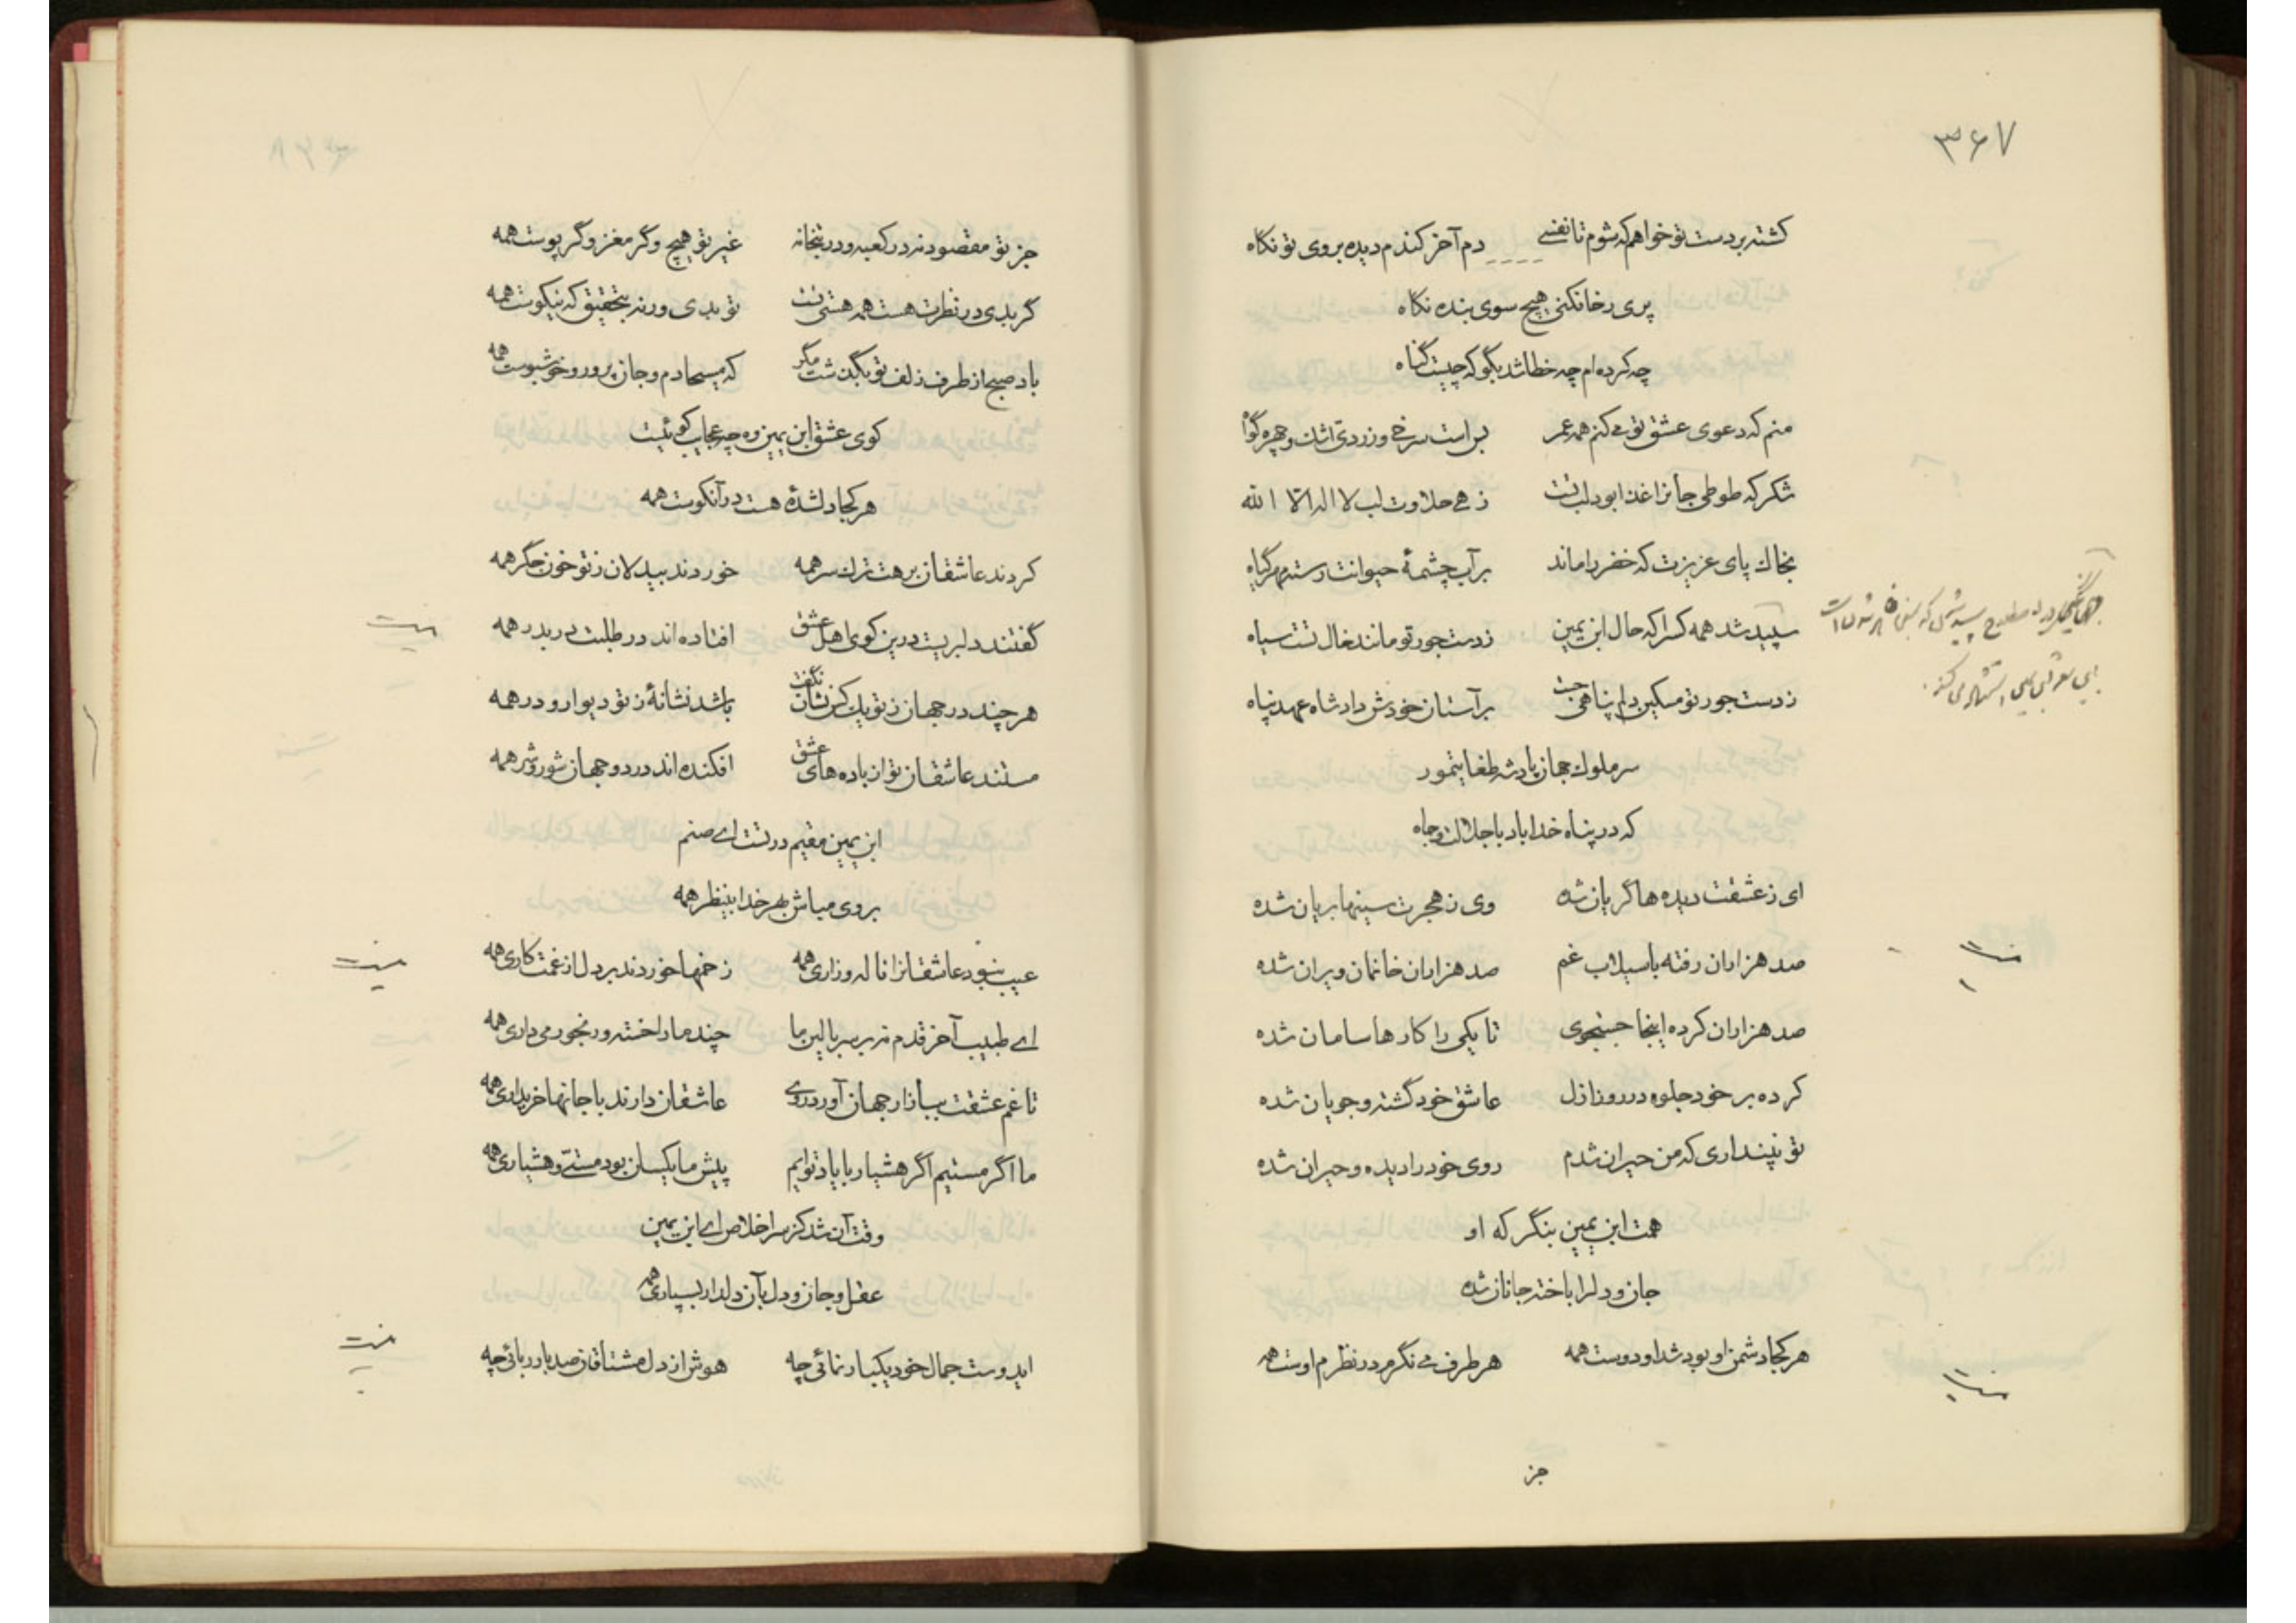 ۳۶۷
کشته بر دست تو خواهم که شوم تا نفسی دم آخر کندم دیده بروی تو نکاه
پری رخا نکنی هیچ سوی بنده نکاه
چه کرده ام چه خطا شد بگو که چیست گناه
منم که دعوی عشق تو می کنم همه عمر بس است سرخی و زردی اشک و چهره گواه
شکر که طوطی جانرا غذا بود لب تست زهی حلاوت لب لا اله الا الله
بخاک پای عزیزت که خضر را ماند بر آب چشمهٔ حیوانت رسته مهر گیاه
سپید شد همه کس را که حال ابن یمین ز دست جور تو مانند خال تست سیاه
ز دست جور تو مسکین دلم پناهی جست بر آستان خودش داد شاه عهد پناه
سر ملوک جهان پادشه طغایتمور
که در پناه خدا باد با جلالت و جاه
ای ز عشقت دیده ها گریان شده وی ز هجرت سینها بریان شده
صد هزاران رفته با سیلاب غم صد هزاران خانمان ویران شده
صد هزاران کرده اینجا جستجوی تا یکی را کارها سامان شده
کرده بر خود جلوه در روز ازل عاشق خود گشته و جویان شده
تو نپنداری که من حیران شدم روی خود را دیده و حیران شده
همت ابن یمین بنگر که او
جان و دلرا باخته جانان شده
هر کجا دشمن او بود شد او دوست همه هر طرف می نگرم در نظرم اوست همه
جز
جز تو مقصود نه در کعبه و در بتخانه غیر تو هیچ وگر مغز و گر پوست همه
گر بدی در نظرت هست همه هستی تست تو بدی ورنه بتحقیق که نیکوست همه
باد صبح از طرف زلف تو بگذشت مگر که مسیحا دم و جان پرور و خوشبوست همه
کوی عشق ابن یمین وه چه عجایب کوئیست
هر کجا دلشدهٔ هست در آنکوست همه
کردند عاشقان برهت ترک سر همه خوردند بیدلان ز تو خون جگر همه
گفتند دلبریست درین کوی اهل عشق افتاده اند در طلبت در بدر همه
هر چند در جهان ز تو یک کس نشان نگفت باشد نشانهٔ ز تو دیوار و در همه
مستند عاشقان تو از باده های عشق افکنده اند در دو جهان شور و شر همه
ابن یمین مقیم در تست ای صنم
بروی مپاش بهر خدا بنظر همه
عیب نبود عاشقانرا ناله و زاری همه زخمها خوردند بر دل از غمت کاری همه
ای طبیب آخر قدم نه بر سر بالین ما چند ما را خسته و رنجور می داری همه
تا غم عشقت ببازار جهان آورد روی عاشقان دارند با جانها خریداری همه
ما اگر مستیم اگر هشیار با یاد توایم پیش ما یکسان بود مستی و هشیاری همه
وقت آن شد کز سر اخلاص ای ابن یمین
عقل و جان و دل بآن دلدار بسپاری همه
ایدوست جمال خود یکبار نمائی چه هوش از دل مشتاقان صد بار ربائی چه